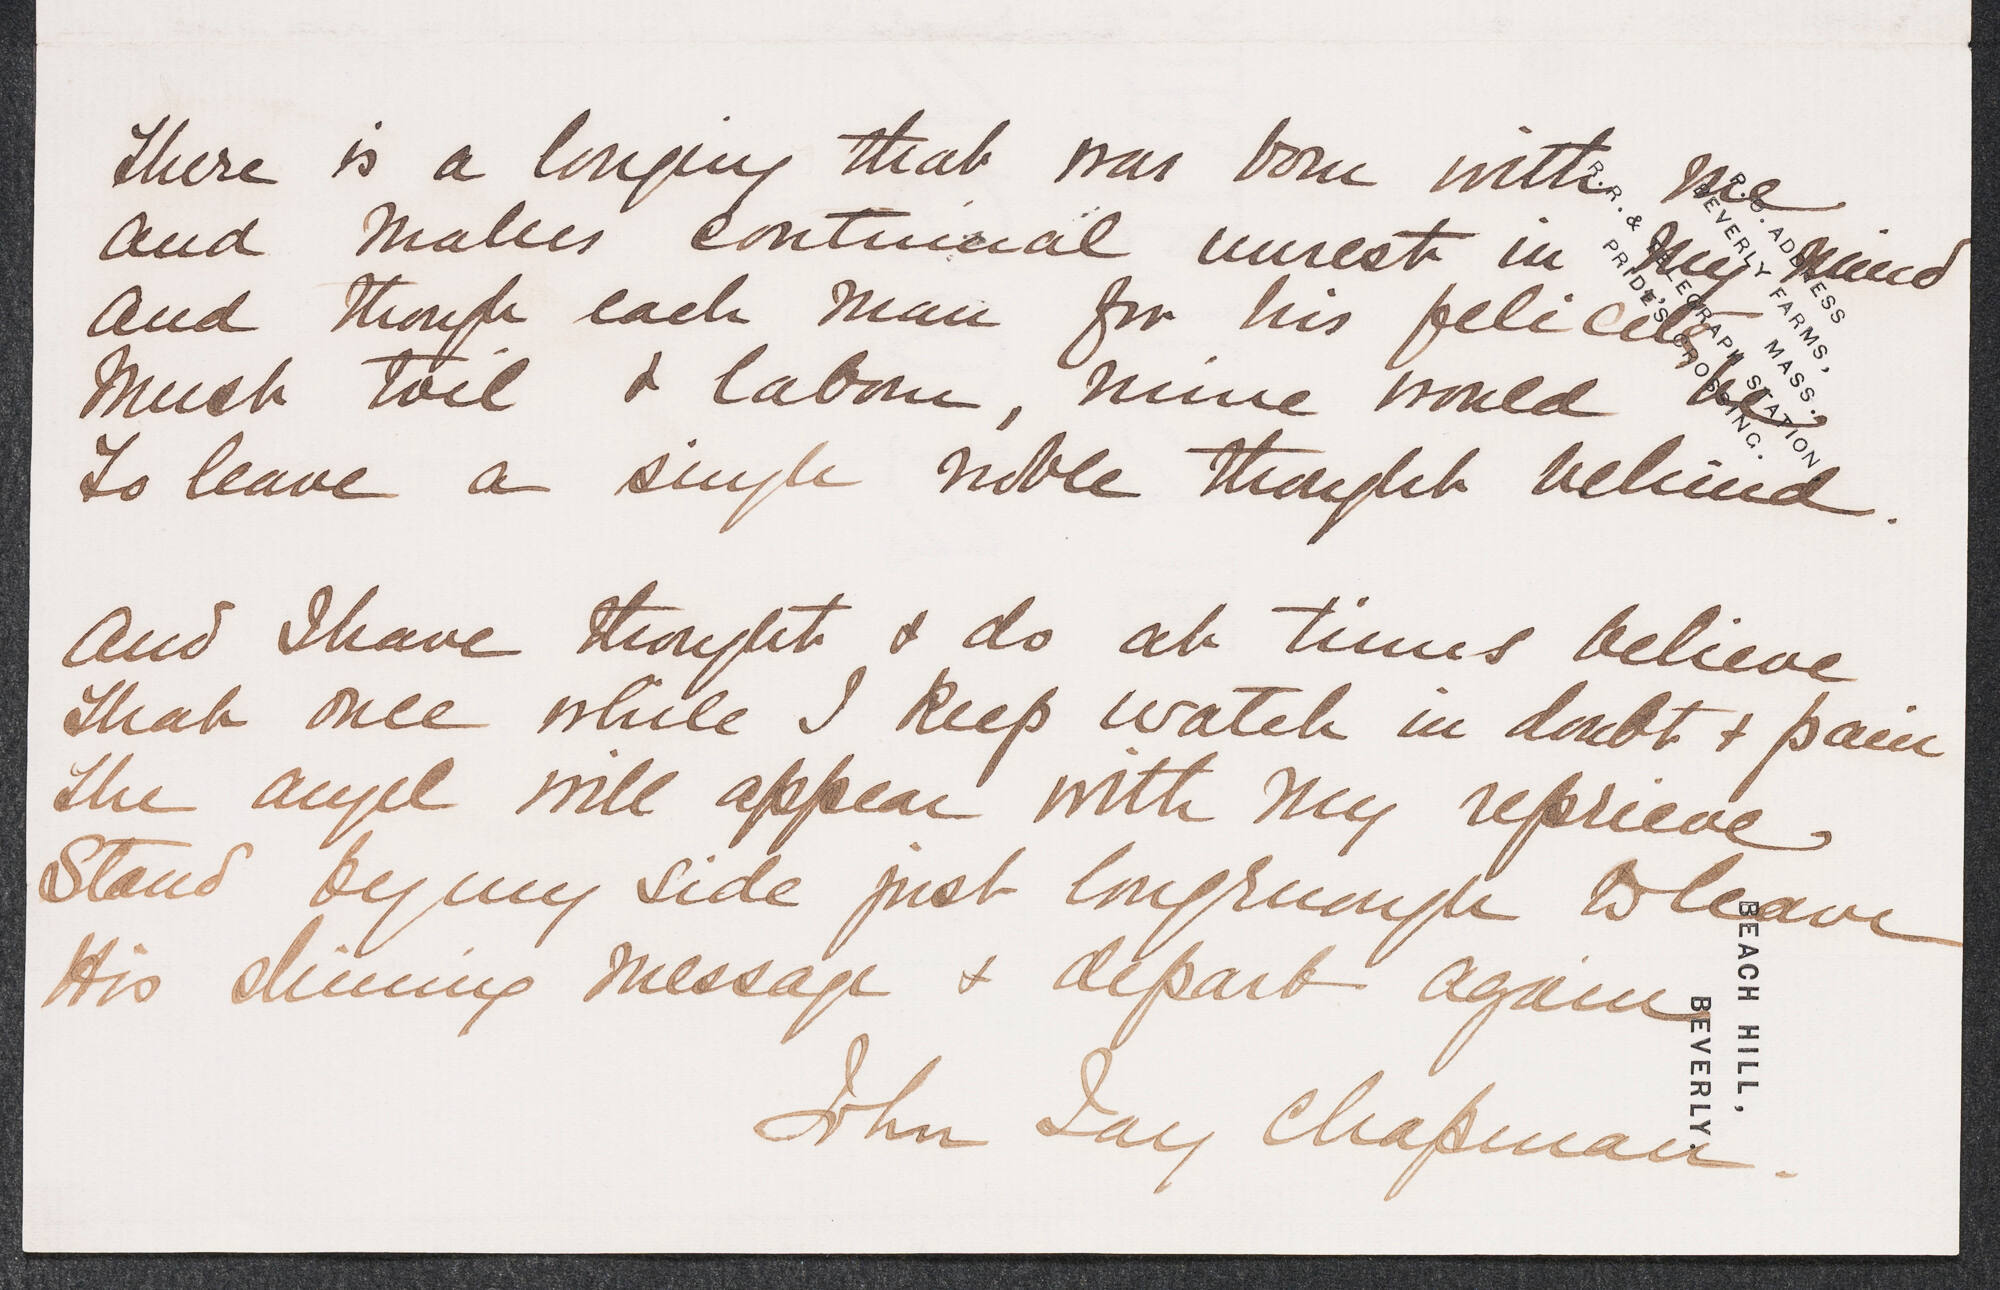 There is a longing that was born with me
And makes continual unrest in my mind
And though each man for his felicity
Must toil & labour, mine would be,
To leave a single noble thought behind.
And I have thought & do at times believe
That once while I keep watch in doubt & pain
The angel will appear with my reprieve,
Stand by my side just long enough to leave
His shining message & depart again
John Jay Chapman.
P.O. ADDRESS
BEVERLY FARMS, MASS.
R.R. & TELEGRAPH STATION
PRIDE'S CROSSING.
BEACH HILL,
BEVERLY.